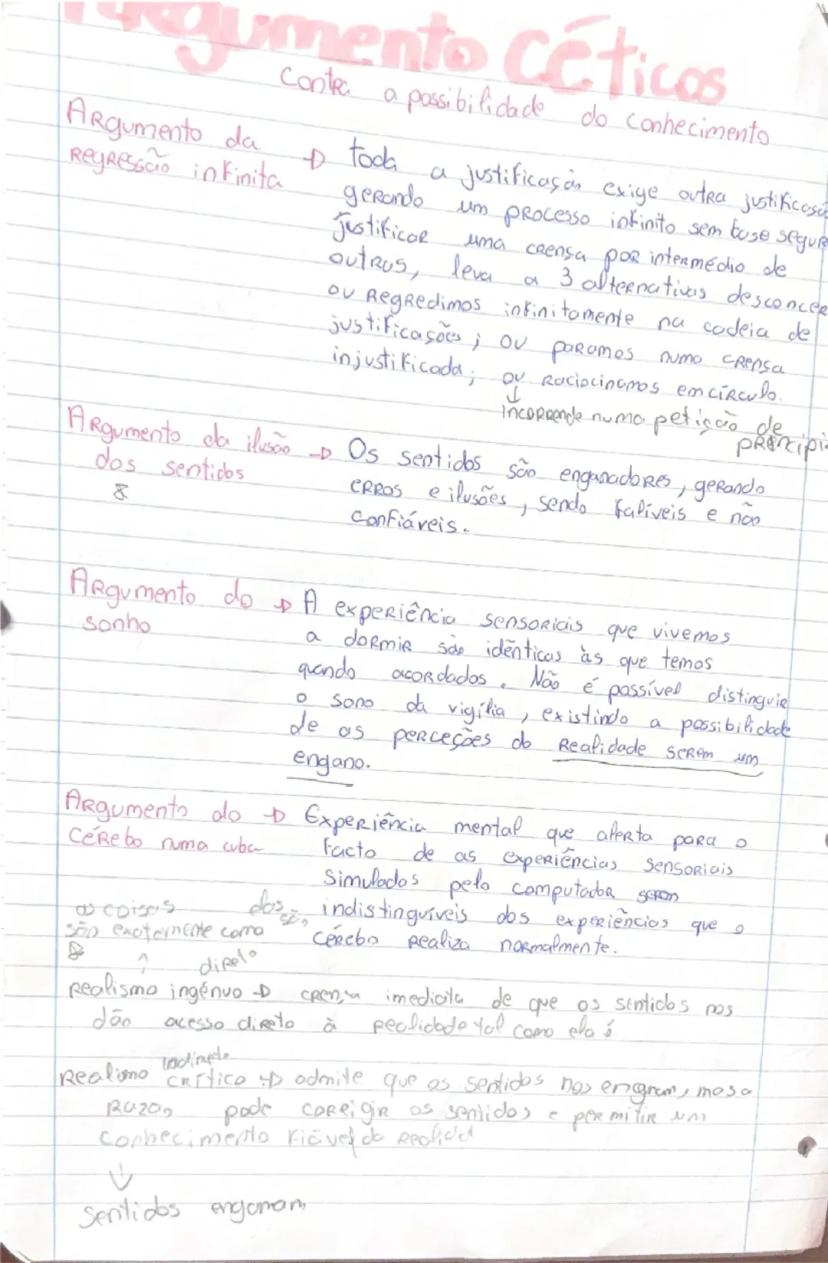 Argumento Céticos
Contra a possibilidade do conhecimento
Argumento da → toda a justificação exige outra justificação
regressão infinita gerando um processo infinito sem base segura
justificar uma crença por intermédio de
outras, leva a 3 alternativas desconcer
ou regredimos infinitamente na cadeia de
justificações; ou paramos numa crença
injustificada; ou raciocinamos em círculo.
↓
incorrendo numa petição de
princípi
Argumento da ilusão → Os sentidos são enganadores, gerando
dos sentidos erros e ilusões, sendo falíveis e não
confiáveis.
Argumento do → A experiência sensoriais que vivemos
sonho a dormir são idênticas às que temos
quando acordados. Não é possível distinguir
o sono da vigília, existindo a possibilidade
de as perceções da Realidade serem um
engano.
Argumento do → Experiência mental que alerta para o
Cérebo numa cuba facto de as experiências sensoriais
simuladas pelo computador serem
indistinguíveis das experiências que o
cérebo realiza normalmente.
as coisas são,
são exatemente como
direto
Realismo ingénuo → crença imediata de que os sentidos nos
dão acesso direto à realidade tal como ela é
indireto
Realimo crítico → admite que os sentidos nos engnam, mas a
Razão pode corrigir os sentidos e permitir um
conhecimento fiável da realidad
↓
sentidos enganam